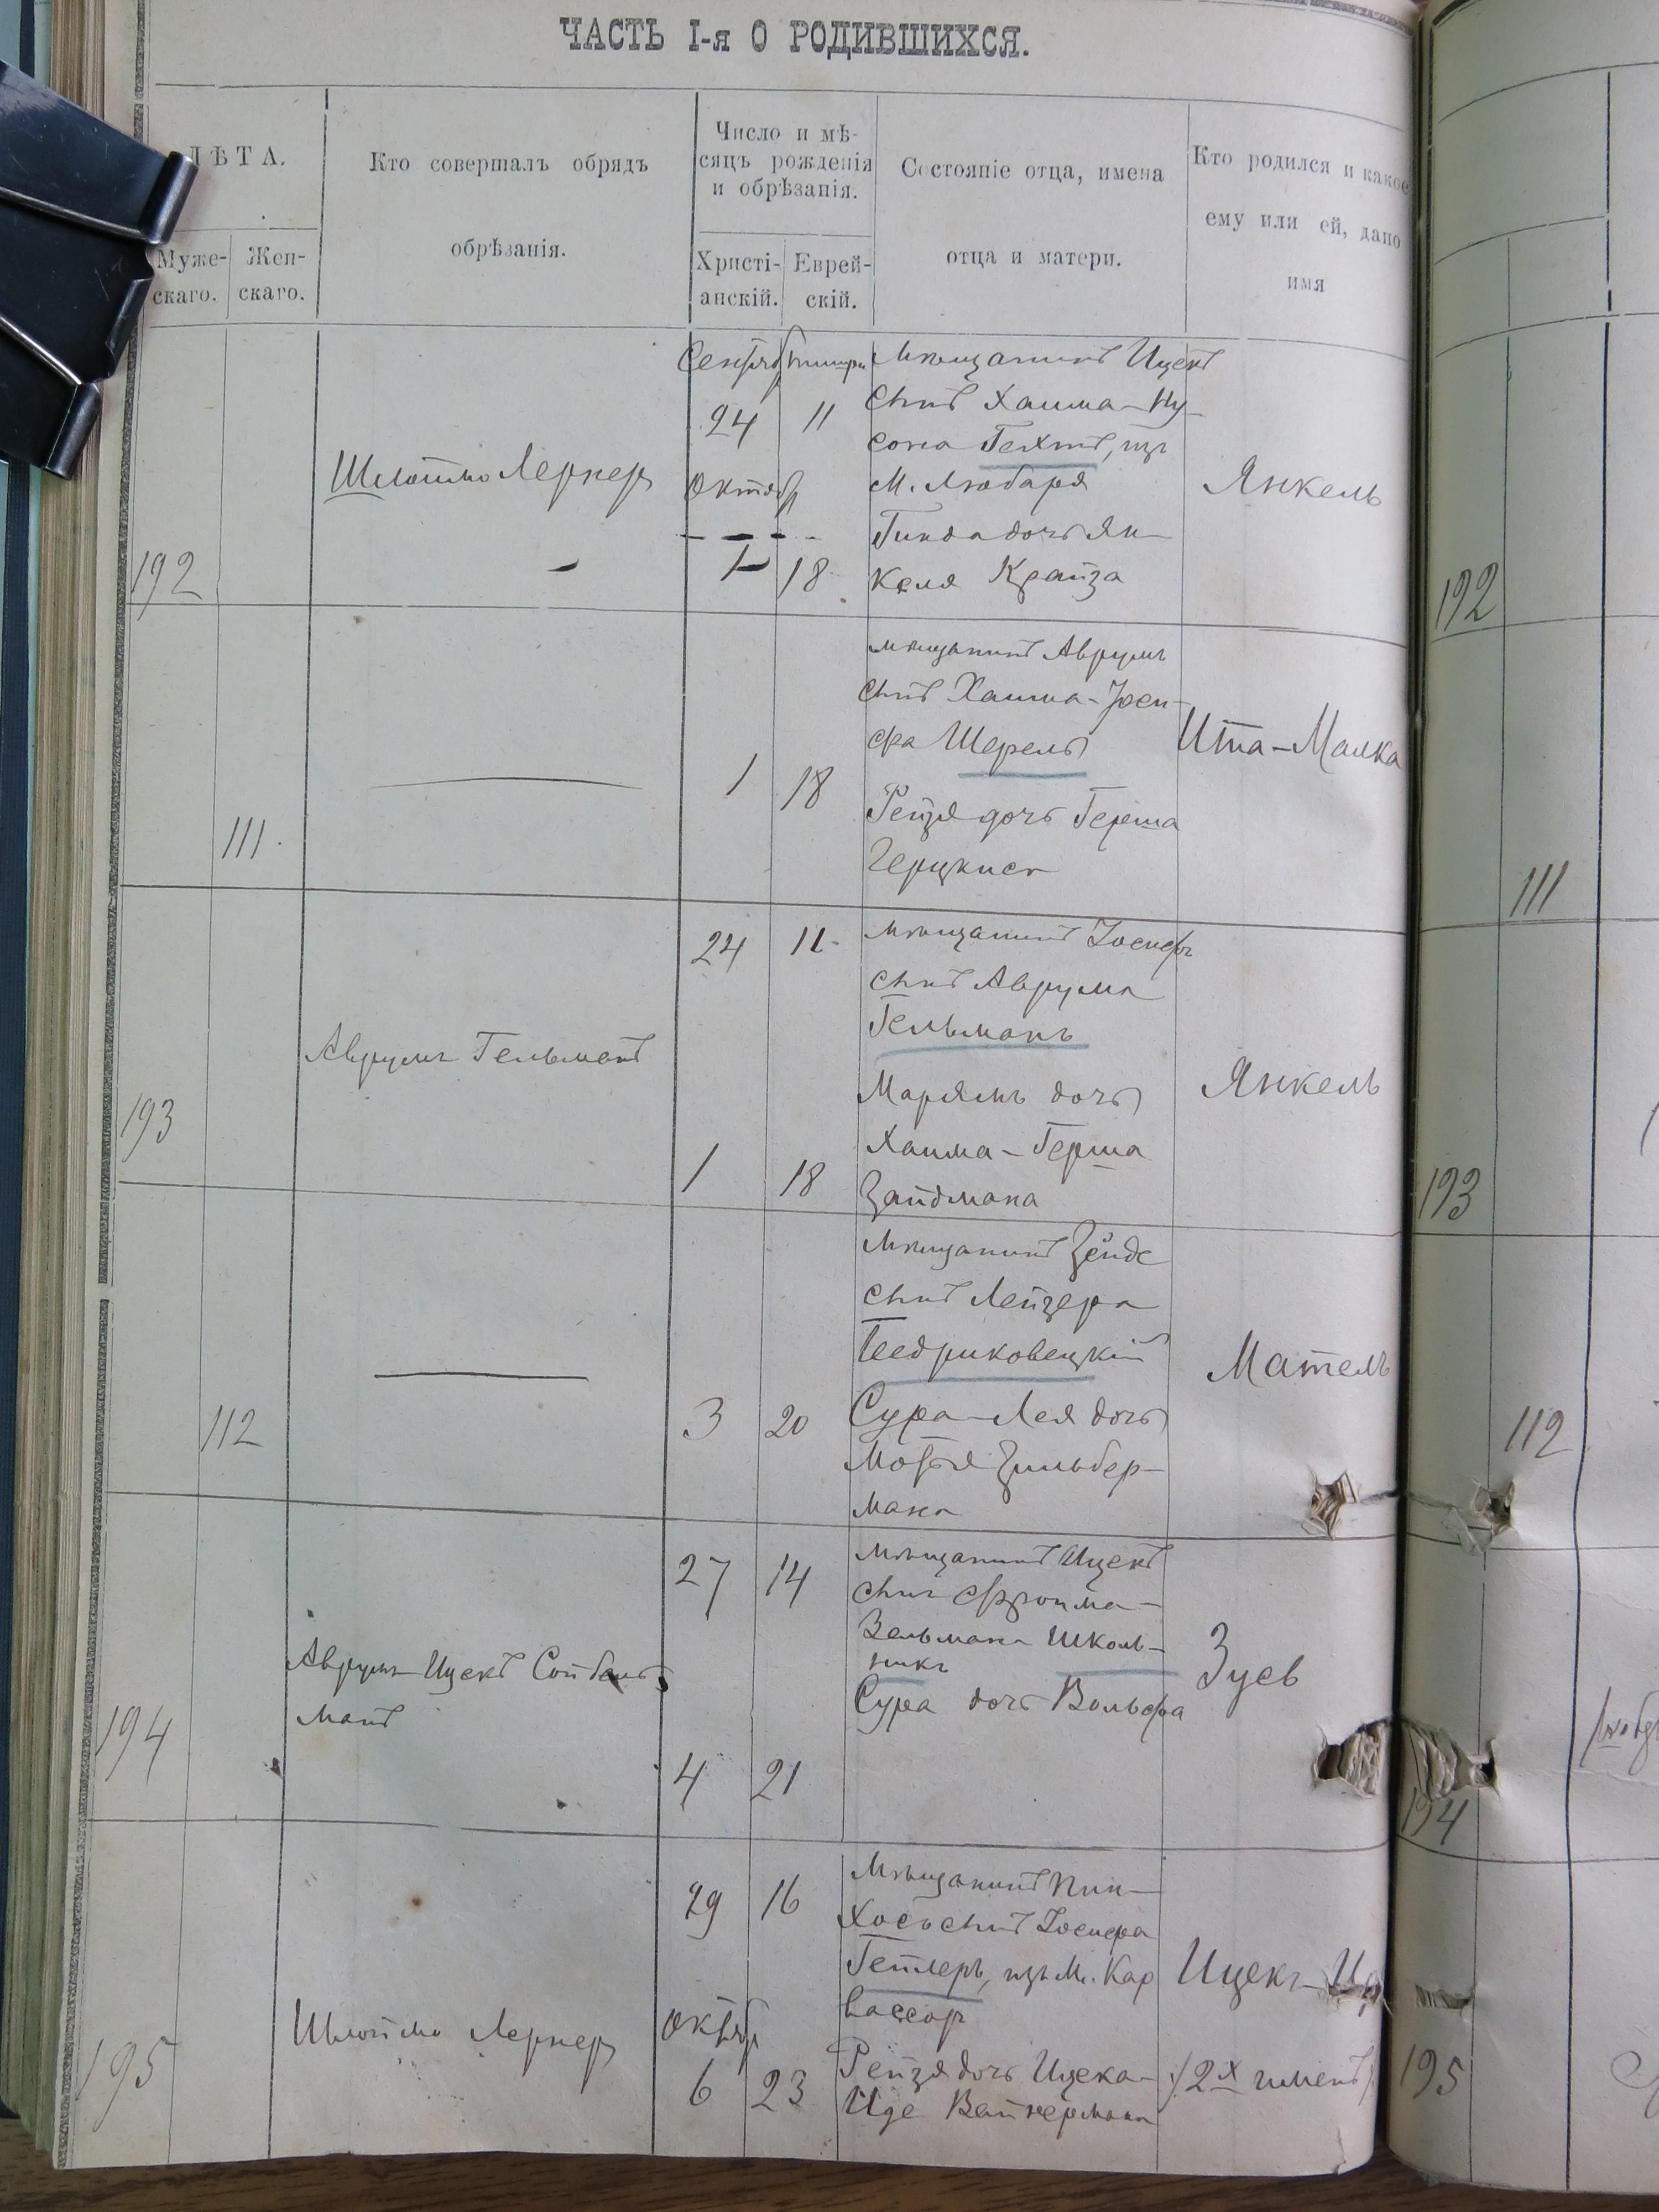 ЧАСТЬ I-я О РОДИВШИХСЯ.
ЛѢТА.
Муже-
скаго.
Жен-
скаго.
Кто совершалъ обрядъ
обрѣзанія.
Число и мѣ-
сяцъ рожденія
и обрѣзанія.
Христі-
анскій.
Еврей-
скій.
Состояніе отца, имена
отца и матери.
Кто родился и какое
ему или ей, дано
имя
192
Шлойма Лернер
Сентяб
24 11
Октяб
1 18
Мѣщанинъ Ицекъ
сынъ Хаима-Ну-
сона
м. Любаря
дочь Ян-
келя Крайза
Янкель
192
111
1 18
мѣщанинъ Аврумъ
сынъ Хаима-Іоси-
фа Шерель
Рейзя дочь Герша
Ита-Малка
111
193
Аврумъ Гельманъ
24 11
1 18
мѣщанинъ Іосифъ
сынъ Аврума
Гельманъ
Марямъ дочь
Хаима-Герша
Зайдмана
Янкель
193
112
3 20
Мѣщанинъ Зейде
сынъ Лейзера
Сура-Лея дочь
Мотя Зильбер-
мана
Матель
112
194
Аврумъ-Ицекъ
манъ
27 14
4 21
Мѣщанинъ Ицекъ
сынъ Фроима-
Зельмана Школь-
никъ
Сура дочь Вольфа
Зусь
194
195
Шлойма Лернер
29 16
Октяб
6 23
Мѣщанинъ Пин-
хосъ сынъ Іосифа
Гетлеръ, изъ м. Кар
вассар
Рейзя дочь Ицека-
Иде Вайнермана
Ицекъ-
/2х именъ/
195